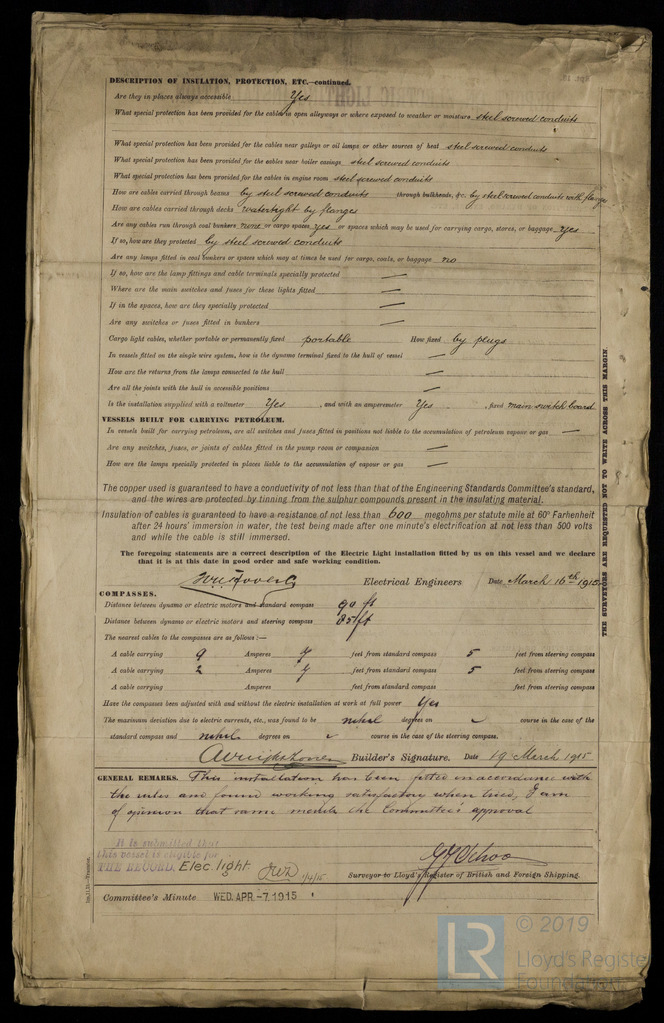 DESCRIPTION OF INSULATION, PROTECTION, ETC.—continued.
Are they in places always accessible Yes
What special protection has been provided for the cables in open alleyways or where exposed to weather or moisture steel screwed conduits
What special protection has been provided for the cables near galleys or oil lamps or other sources of heat steel screwed conduits
What special protection has been provided for the cables near boiler casings steel screwed conduits
What special protection has been provided for the cables in engine room steel screwed conduits
How are cables carried through beams by steel screwed conduits through bulkheads, &c. by steel screwed conduits with flange
How are cables carried through decks watertight by flanges
Are any cables run through coal bunkers none or cargo spaces yes or spaces which may be used for carrying cargo, stores, or baggage yes
If so, how are they protected by steel screwed conduits
Are any lamps fitted in coal bunkers or spaces which may at times be used for cargo, coals, or baggage no
If so, how are the lamp fittings and cable terminals specially protected —
Where are the main switches and fuses for these lights fitted —
If in the spaces, how are they specially protected —
Are any switches or fuses fitted in bunkers —
Cargo light cables, whether portable or permanently fixed portable How fixed by plugs
In vessels fitted on the single wire system, how is the dynamo terminal fixed to the hull of vessel —
How are the returns from the lamps connected to the hull —
Are all the joints with the hull in accessible positions —
Is the installation supplied with a voltmeter Yes , and with an amperemeter Yes , fixed main switch board
VESSELS BUILT FOR CARRYING PETROLEUM.
In vessels built for carrying petroleum, are all switches and fuses fitted in positions not liable to the accumulation of petroleum vapour or gas —
Are any switches, fuses, or joints of cables fitted in the pump room or companion —
How are the lamps specially protected in places liable to the accumulation of vapour or gas —
The copper used is guaranteed to have a conductivity of not less than that of the Engineering Standards Committee's standard,
and the wires are protected by tinning from the sulphur compounds present in the insulating material.
Insulation of cables is guaranteed to have a resistance of not less than 600 megohms per statute mile at 60° Farhenheit
after 24 hours' immersion in water, the test being made after one minute's electrification at not less than 500 volts
and while the cable is still immersed.
The foregoing statements are a correct description of the Electric Light installation fitted by us on this vessel and we declare
that it is at this date in good order and safe working condition.
Electrical Engineers Date March 16th 1915
COMPASSES.
Distance between dynamo or electric motors and standard compass 90 ft
Distance between dynamo or electric motors and steering compass 85 ft
The nearest cables to the compasses are as follows:—
A cable carrying 9 Amperes 7 feet from standard compass 5 feet from steering compass
A cable carrying 2 Amperes 7 feet from standard compass 5 feet from steering compass
A cable carrying Amperes feet from standard compass feet from steering compass
Have the compasses been adjusted with and without the electric installation at work at full power Yes
The maximum deviation due to electric currents, etc., was found to be degrees on course in the case of the
standard compass and degrees on course in the case of the steering compass.
Builder's Signature. Date 19 March 1915
GENERAL REMARKS. This installation has been fitted in accordance with
the rules and found working satisfactory when tried, I am
of opinion that same merits the Committee's approval
It is submitted that
this vessel is eligible for
THE RECORD. Elec. light 1/4/15
Surveyor to Lloyd's Register of British and Foreign Shipping.
Committee's Minute WED. APR. -7. 1915
THE SURVEYORS ARE REQUESTED NOT TO WRITE ACROSS THIS MARGIN.
LR
© 2019
Lloyd's Register
Foundation